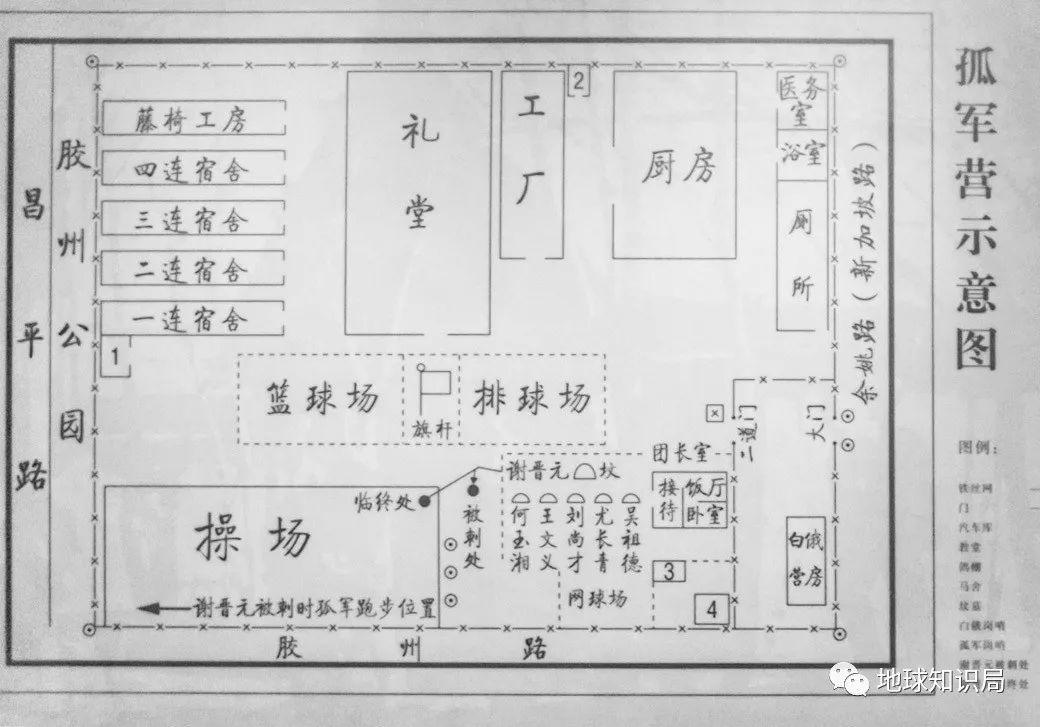 孤军营示意图
昌平路
胶州公园
藤椅工房
四连宿舍
三连宿舍
二连宿舍
一连宿舍
1
礼堂
工厂
2
厨房
医务室
浴室
厕所
余姚路（新加坡路）
篮球场
旗杆
排球场
二道门
大门
团长室
接待
饭厅
卧室
谢晋元
坟
何玉湘
王文义
刘尚才
尤长青
吴祖德
临终处
被刺处
操场
谢晋元被刺时孤军跑步位置
网球场
3
4
白俄营房
胶州路
图例：
铁丝网
门
汽车库
教堂
鸽棚
马舍
坟墓
白俄岗哨
孤军岗哨
谢晋元被刺处
终处
地球知识局